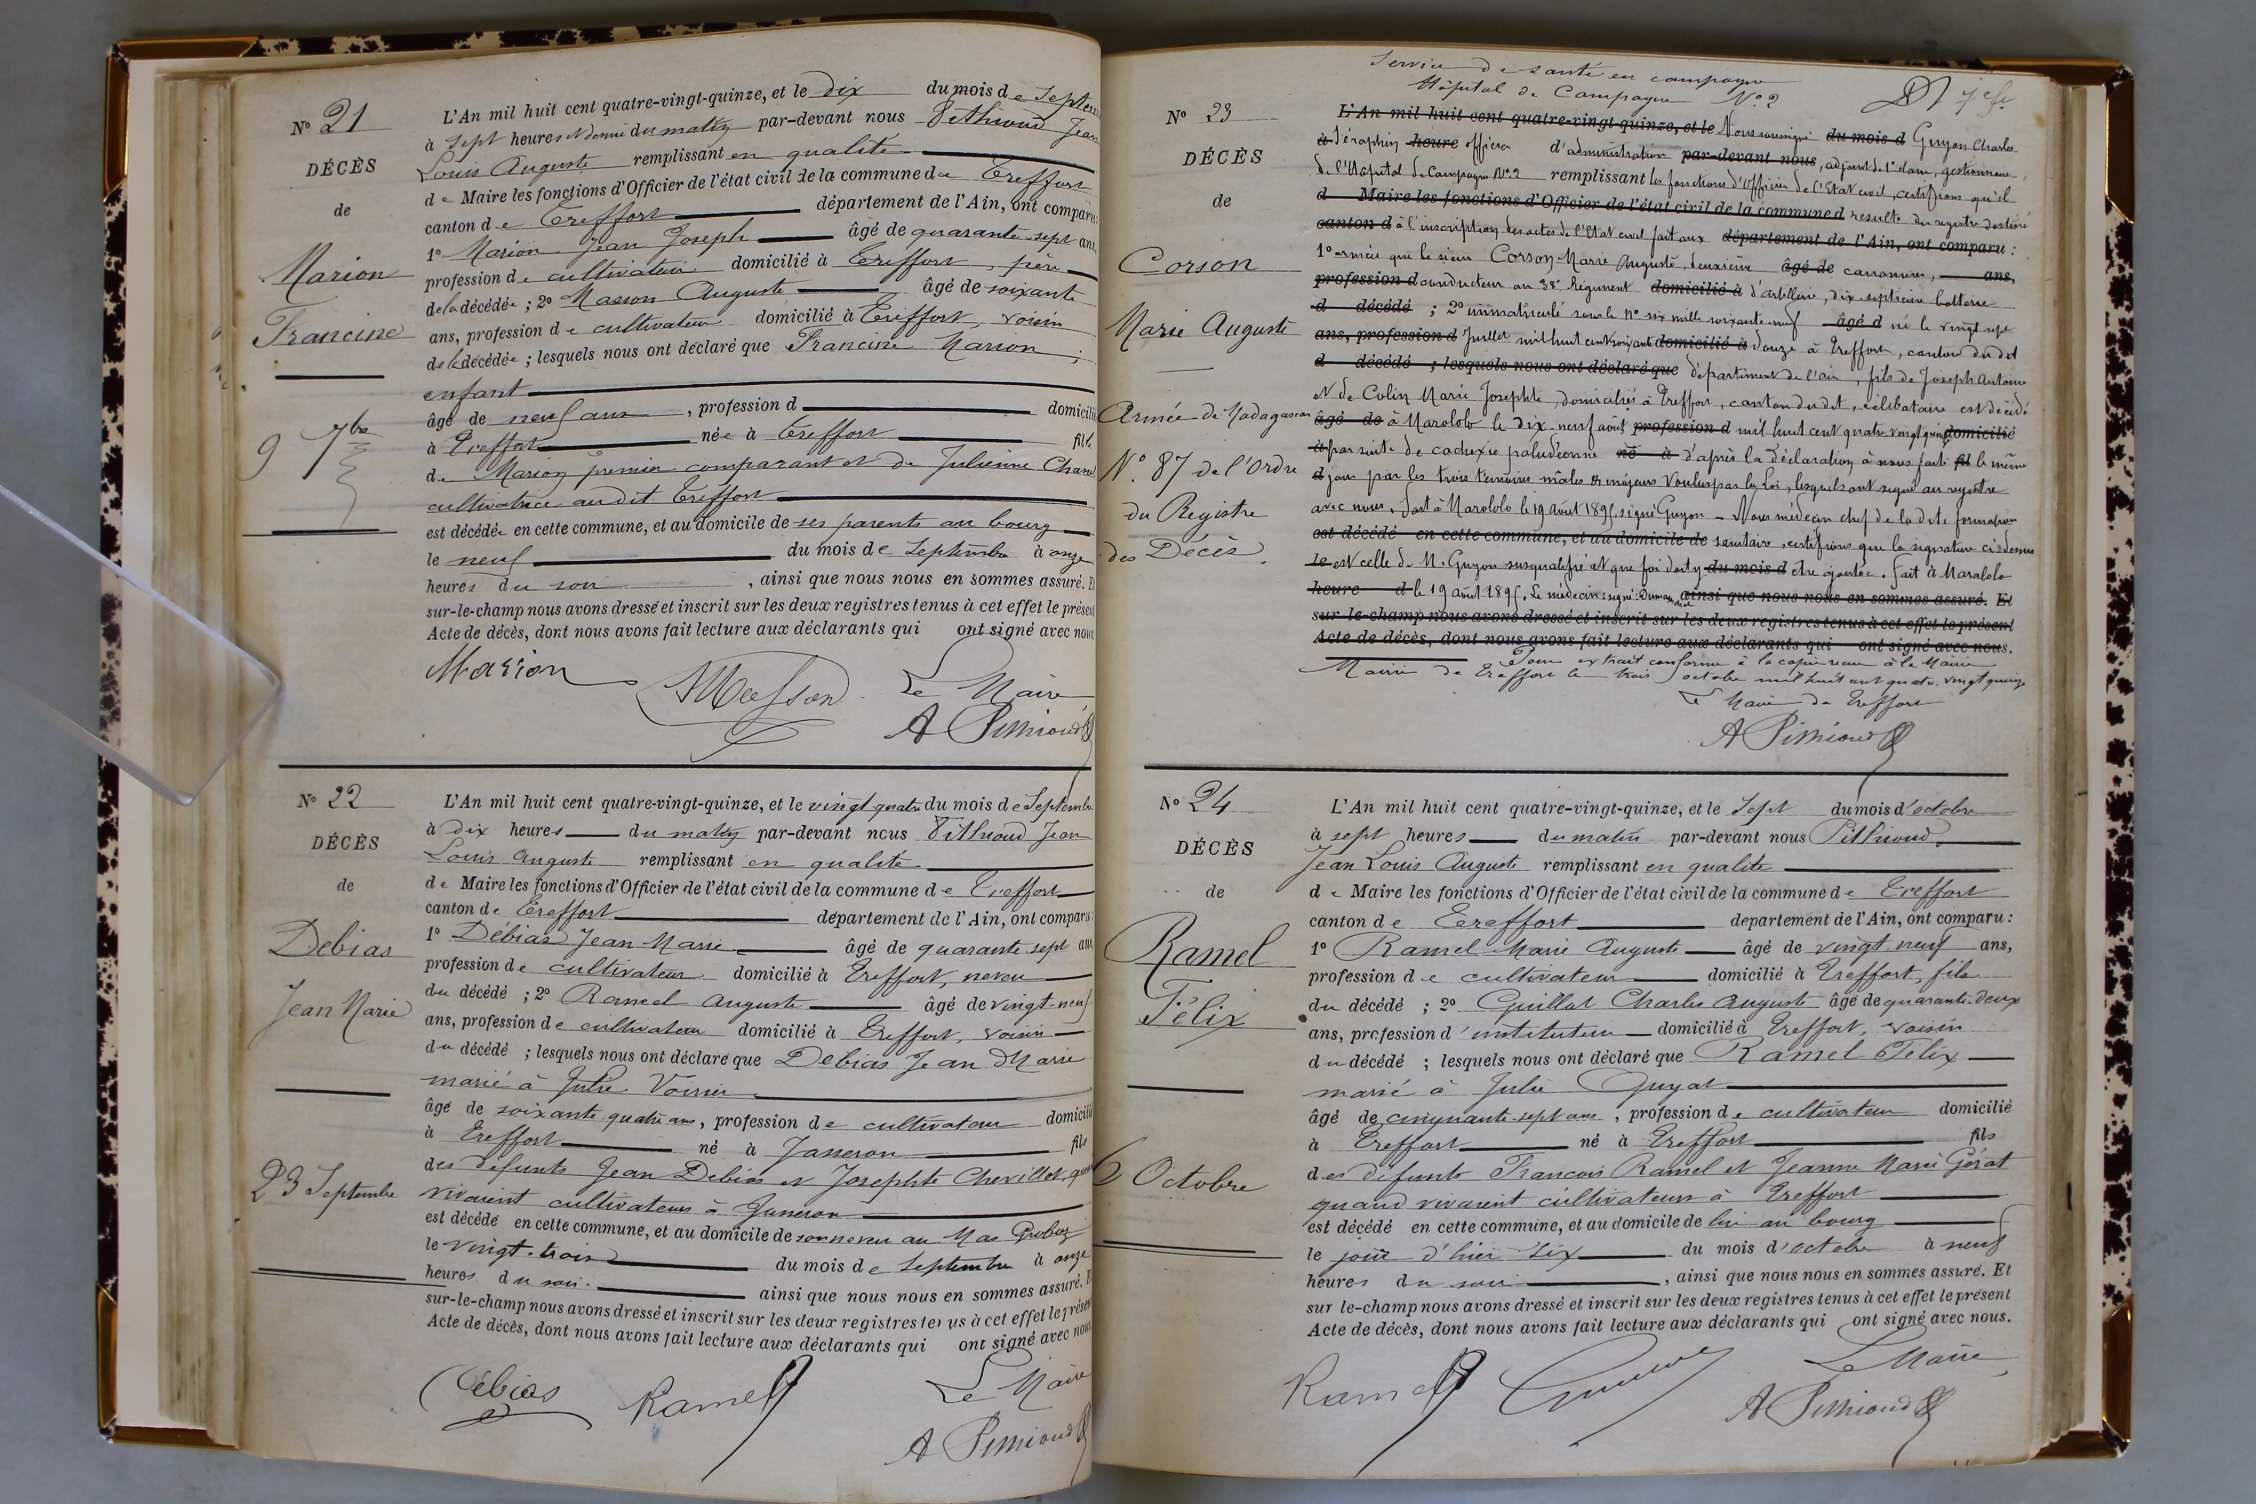 N° 21
DÉCÈS
de
Marion
Francine
9 7bre
L'An mil huit cent quatre-vingt-quinze, et le dix du mois de Septem
à sept heures et demie du matin par-devant nous Pithioud Jean
Louis Auguste remplissant en qualité
de Maire les fonctions d'Officier de l'état civil de la commune de Treffort
canton de Treffort département de l'Ain, ont comparu:
1° Marion Jean Joseph âgé de quarante-sept ans,
profession de cultivateur domicilié à Treffort, père
de la décédée; 2° Masson Auguste âgé de soixante
ans, profession de cultivateur domicilié à Treffort, voisin
de la décédée; lesquels nous ont déclaré que Francine Marion,
enfant
âgé de neuf ans, profession d domicilié
à Treffort née à Treffort fille
de Marion premier comparant et de Julienne Chanel
cultivatrice audit Treffort
est décédée en cette commune, et au domicile de ses parents au bourg
le neuf du mois de Septembre à onze
heures du soir, ainsi que nous nous en sommes assuré. Et
sur-le-champ nous avons dressé et inscrit sur les deux registres tenus à cet effet le présent
Acte de décès, dont nous avons fait lecture aux déclarants qui ont signé avec nous.
Marion AMasson Le Maire
A Pithioud
N° 22
DÉCÈS
de
Debias
Jean Marie
23 Septembre
L'An mil huit cent quatre-vingt-quinze, et le vingt quatre du mois de Septembre
à dix heures du matin par-devant nous Pithioud Jean
Louis Auguste remplissant en qualité
de Maire les fonctions d'Officier de l'état civil de la commune de Treffort
canton de Treffort département de l'Ain, ont comparu:
1° Débias Jean Marie âgé de quarante sept ans
profession de cultivateur domicilié à Treffort, neveu
du décédé; 2° Ramel Auguste âgé de vingt-neuf
ans, profession de cultivateur domicilié à Treffort, voisin
du décédé; lesquels nous ont déclaré que Debias Jean Marie
marié à Julie
âgé de soixante quatre ans, profession de cultivateur domicilié
à Treffort né à Jasseron fils
des défunts Jean Debias et Josephte Chevillet, quand
vivaient cultivateurs à Jasseron
est décédé en cette commune, et au domicile de son neveu au Mas
le vingt-trois du mois de Septembre à onze
heures du soir. ainsi que nous nous en sommes assuré. Et
sur-le-champ nous avons dressé et inscrit sur les deux registres tenus à cet effet le présent
Acte de décès, dont nous avons fait lecture aux déclarants qui ont signé avec nous
Débias Ramel Le Maire
A Pithioud
Service de santé en campagne
Hôpital de Campagne N° 2
N° 23
DÉCÈS
de
Corson
Marie Auguste
Armée de Madagascar
N° 87 de l'Ordre
du Registre
des Décès.
L'An mil huit cent quatre-vingt-quinze, et le Nous soussigné du mois d Guyon Charles
à Séraphin heure officier d'administration par-devant nous, adjoint de 1ère classe, gestionnaire
de l'Hôpital de Campagne N° 2 remplissant les fonctions d'Officier de l'Etat civil, certifions qu'il
d Maire les fonctions d'Officier de l'état civil de la commune d résulte du registre destiné
canton d à l'inscription des actes de l'Etat civil fait aux département de l'Ain, ont comparu:
1° armées que le sieur Corson Marie Auguste, deuxième âgé de canonnier, ans,
profession d conducteur au 38e Régiment domicilié à d'artillerie, dix-septième batterie
d décédé; 2° immatriculé sous le N° six mille soixante-neuf âgé d né le vingt sept
ans, profession d Juillet mil huit cent soixante domicilié à douze à Treffort, canton dudit
d décédé; lesquels nous ont déclaré que département de l'ain, fils de Joseph Antoine
et de Colin Marie Josephte, domiciliés à Treffort, canton dudit, célibataire est décédé
âgé de à Marololo le dix-neuf août profession d mil huit cent quatre-vingt quinze domicilié
à par suite de cachexie paludéenne né à d'après la déclaration à nous faite fil le même
d jour par les trois témoins mâles et majeurs voulus par la Loi, lesquels ont signé au registre
avec nous. Fait à Marololo le 19 août 1895. signé Guyon – Nous médecin chef de la dite formation
est décédé en cette commune, et au domicile de sanitaire, certifions que la signature ci-dessus
le est celle de M. Guyon susqualifié et que foi doit y du mois d être ajoutée. Fait à Marololo
heure d le 19 août 1895, Le médecin: signé: ainsi que nous nous en sommes assuré. Et
sur-le-champ nous avons dressé et inscrit sur les deux registres tenus à cet effet le présent
Acte de décès, dont nous avons fait lecture aux déclarants qui ont signé avec nous.
Pour extrait conforme à la copie reçue à la Mairie
Mairie de Treffort le trois octobre mil huit cent quatre-vingt quinze
Le Maire de Treffort
A Pithioud
N° 24
DÉCÈS
de
Ramel
Félix
6 Octobre
L'An mil huit cent quatre-vingt-quinze, et le Sept du mois d'octobre
à sept heures du matin par-devant nous Pithioud
Jean Louis Auguste remplissant en qualité
de Maire les fonctions d'Officier de l'état civil de la commune de Treffort
canton de Treffort département de l'Ain, ont comparu:
1° Ramel Marie Auguste âgé de vingt neuf ans,
profession de cultivateur domicilié à Treffort, fils
du décédé; 2° Guillot Charles Auguste âgé de quarante-deux
ans, profession d'instituteur domicilié à Treffort, voisin
du décédé; lesquels nous ont déclaré que Ramel Félix
marié à Julie Guyat
âgé de cinquante-sept ans, profession de cultivateur domicilié
à Treffort né à Treffort fils
des défunts François Ramel et Jeanne Marie Pérat
quand vivaient cultivateurs à Treffort
est décédé en cette commune, et au domicile de lui au bourg
le jour d'hier six du mois d'octobre à neuf
heures du soir, ainsi que nous nous en sommes assuré. Et
sur le-champ nous avons dressé et inscrit sur les deux registres tenus à cet effet le présent
Acte de décès, dont nous avons fait lecture aux déclarants qui ont signé avec nous.
Ramel Le Maire
A Pithioud